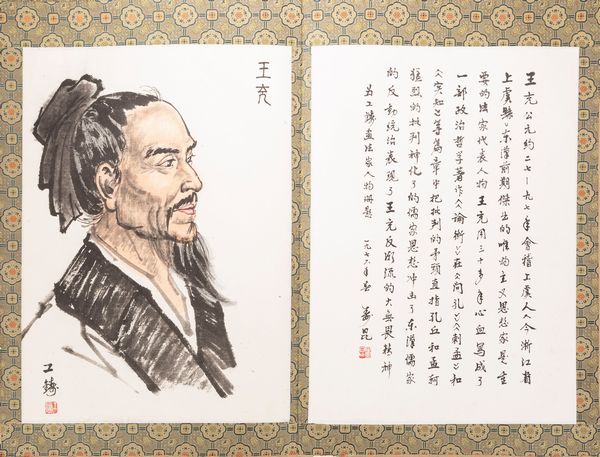 王充
王充公元约二七—九七年會稽上虞人《今浙江省
上虞縣》东漢前期傑出的唯物主义思想家是重
要的法家代表人物王充用三十多年心血写成了
一部政治哲学著作《論衡》在《问孔》《刺孟》和
《实知》等篇章中把批判的矛头直指孔丘和孟轲
猛烈的批判神化了的儒家思想冲击了东漢儒家
的反动统治表现了王充反潮流的大无畏精神
工鑄画法家人物册题 一九七六年春
工鑄